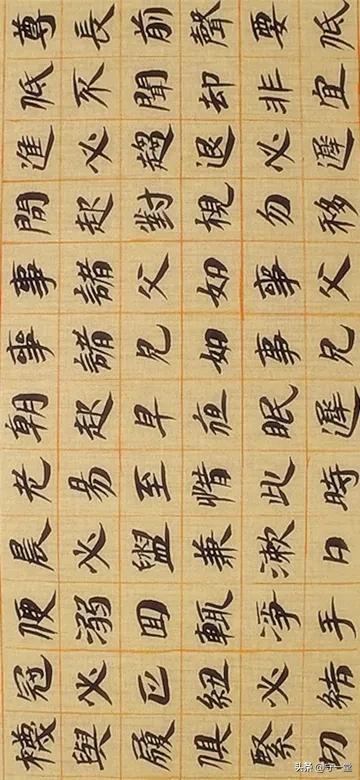 尊長前聲要低
低不聞却非宜
進必趨退必遲
問起對視勿移
事諸父如事父
事諸兄如事兄
朝起早夜眠遲
老易至惜此時
晨必盥兼漱口
便溺回輒淨手
冠必正紐必結
襪與履俱緊切
头条 @守一堂